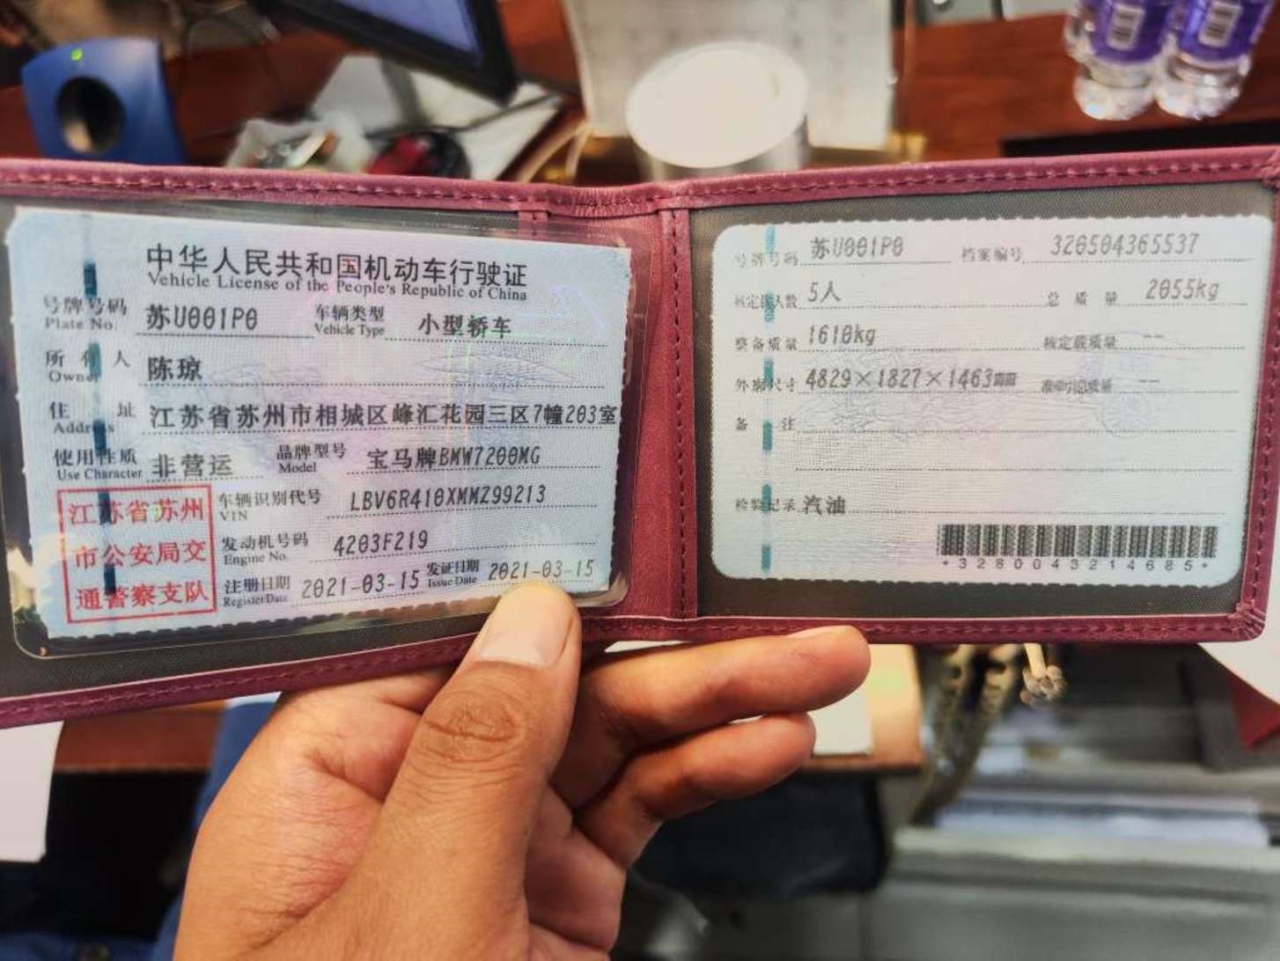 中华人民共和国机动车行驶证
Vehicle License of the People's Republic of China
号牌号码 苏U001P0 车辆类型 小型轿车
Plate No. Vehicle Type
所有人 陈琼
Owner
住址 江苏省苏州市相城区峰汇花园三区7幢203室
Address
使用性质 非营运 品牌型号 宝马牌BMW7200MG
Use Character Model
江苏省苏州
市公安局交
通警察支队
车辆识别代号 LBV6R410XMMZ99213
VIN
发动机号码 4203F219
Engine No.
注册日期 2021-03-15 发证日期 2021-03-15
Register Date Issue Date
号牌号码 苏U001P0 档案编号 320504365537
核定载人数 5人 总质量 2055kg
整备质量 1610kg 核定载质量 --
外廓尺寸 4829×1827×1463 准牵引总质量 --
备注
检验记录 汽油
*3280043214685*